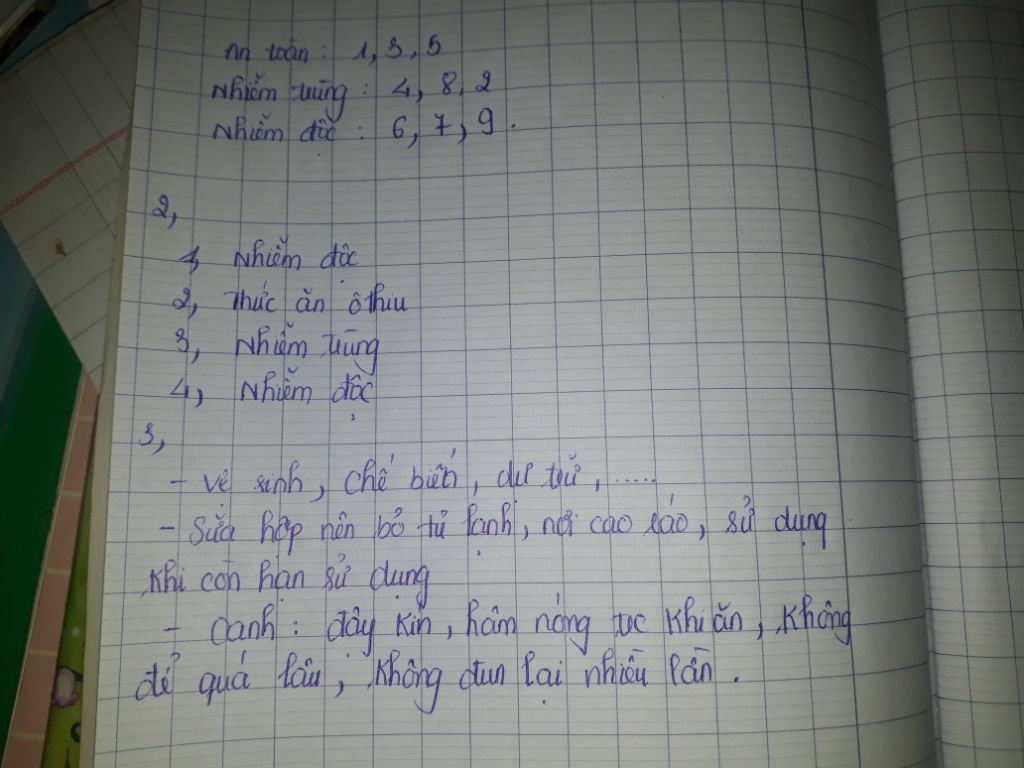 An toàn : 1, 3, 5
Nhiễm trùng : 4, 8, 2
Nhiễm độc : 6, 7, 9.
2,
1, Nhiễm độc
2, Thức ăn ô thiu
3, Nhiễm trùng
4, Nhiễm độc
3,
- Vệ sinh, chế biến, dự trữ, .....
- Sữa hộp nên bỏ tủ lạnh, nơi cao ráo, sử dụng
khi còn hạn sử dụng
- Canh : đậy kín, hâm nóng trc khi ăn, không
để quá lâu, không đun lại nhiều lần.